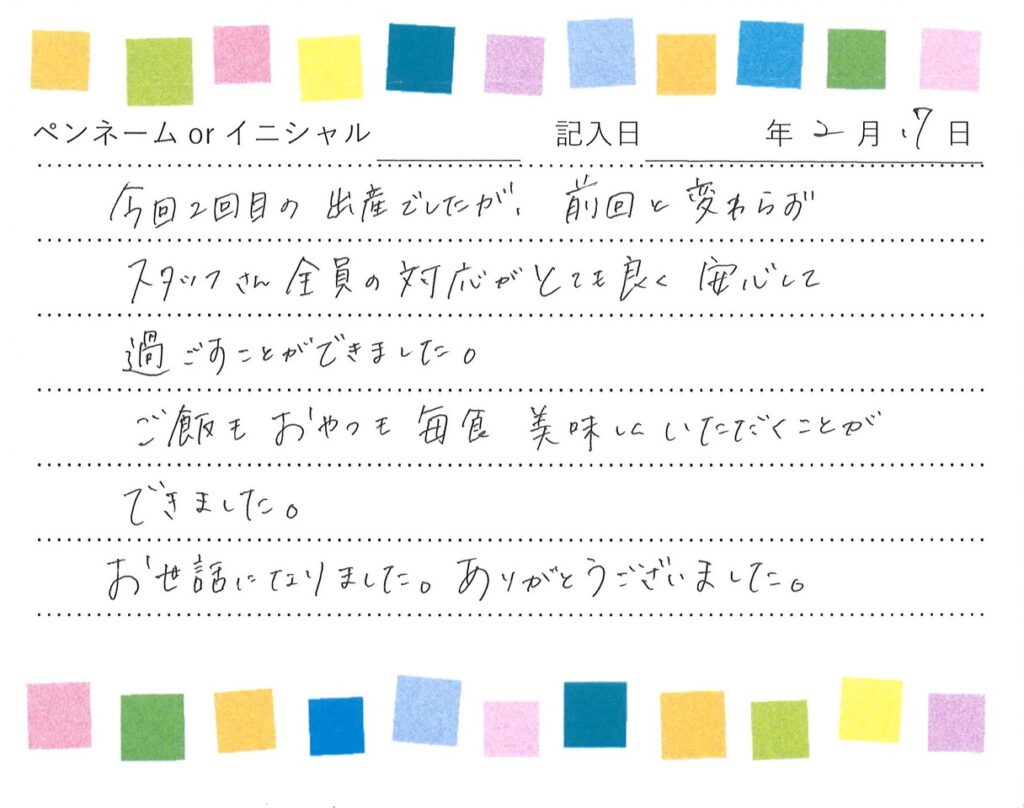 ペンネーム or イニシャル 記入日 年 2 月 17 日
今回2回目の出産でしたが、前回と変わらず
スタッフさん全員の対応がとても良く安心して
過ごすことができました。
ご飯もおやつも毎食美味しくいただくことが
できました。
お世話になりました。ありがとうございました。